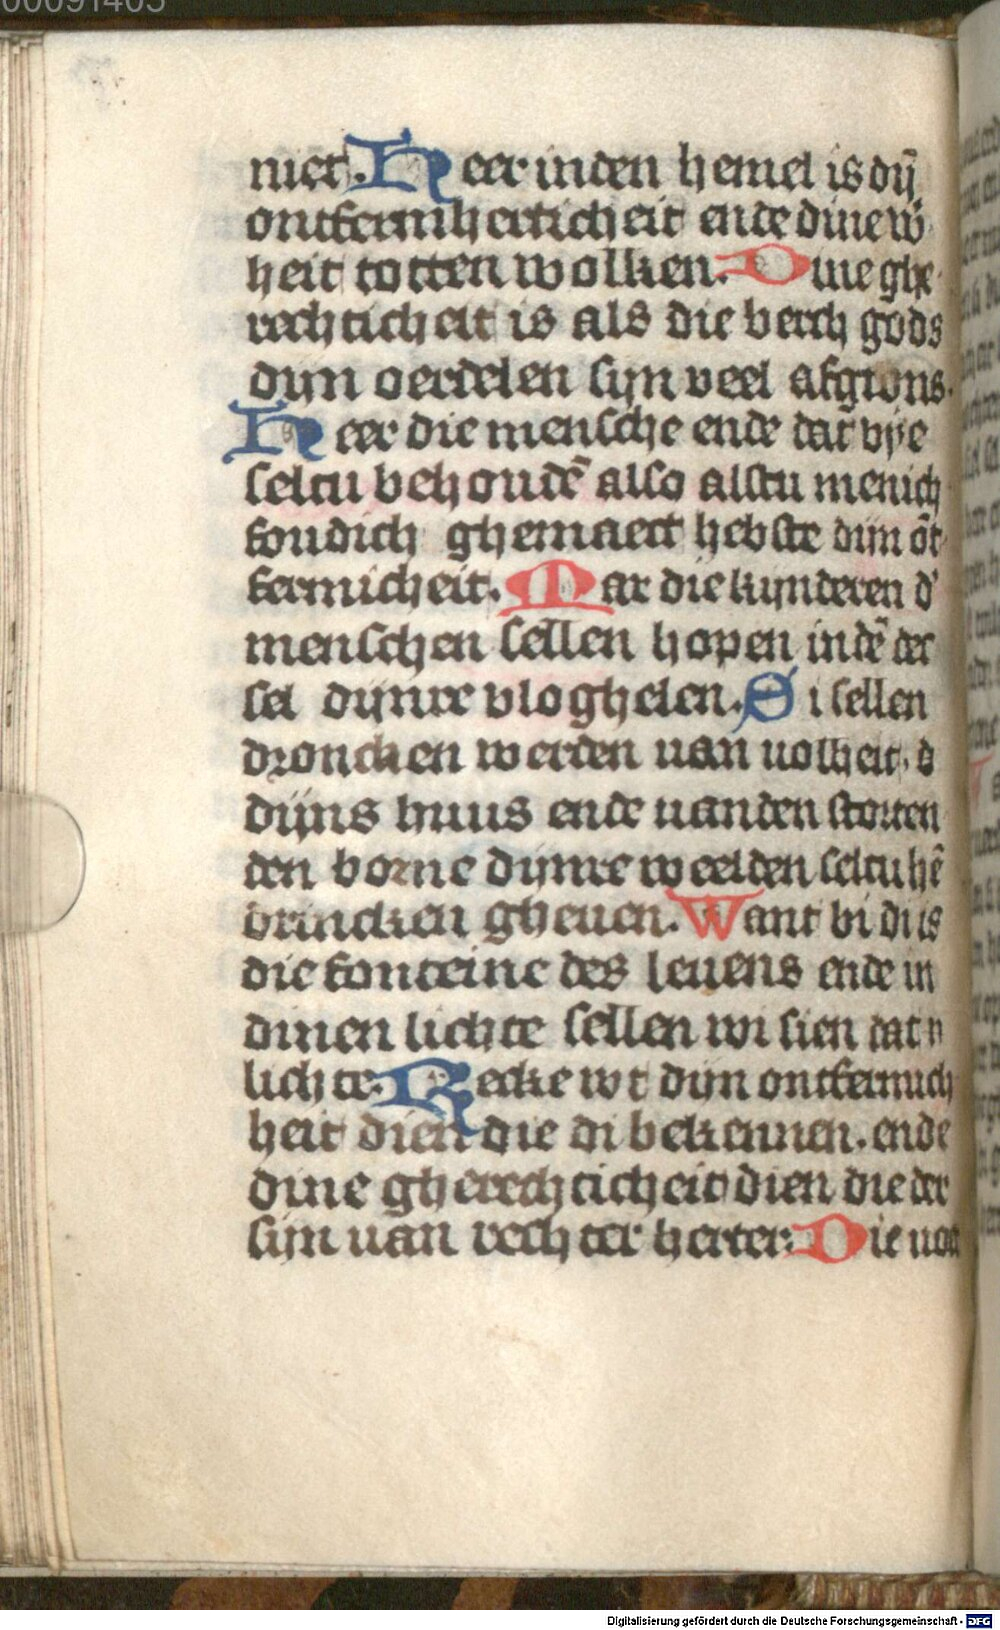 00091405
niet. Heer in den hemel is dÿ̄
ontfermherticheit ende dine w̄
heit totten wolken. Dine ghe
rechticheit is als die berch gods
dijn oerdelen sijn veel afgrons.
Heer die mensche ende dat vye
seltu behoudē also alstu menich
foudich ghemaect hebste dijn ōt
fermicheit. Mar die kijnderen d'
menschen sellen hopen in dē der
sel dijnre vloghelen. Si sellen
droncken werden uan uolheit. d
dijns huus ende uanden storten
den borne dijnre weelden seltu hē
drincken gheuen. Want bi di is
die fonteine des leuens ende in
dinen lichte sellen wi sien dat n
lichte. Recke wt dijn ontfermich
heit dien die di bekennen. ende
dine gherechticheit dien die der
sijn uan rechter herter. Die uoet
Digitalisierung gefördert durch die Deutsche Forschungsgemeinschaft - DFG